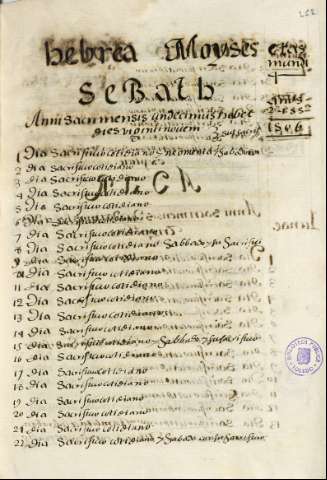 252
hebrea Moyses etas
mundi
SeBath
Anni sacri mensis undecimus habet
dies viginti novem
1806
1 Dia Sacrificio cotidiano
2 dia Sacrificio cotidiano
3 dia Sacrificio cotidiano
4 Dia Sacrificio cotidiano
5 Dia Sacrificio cotidiano
6 Dia Sacrificio cotidiano
7 Dia Sacrificio cotidiano
8 Dia Sacrificio cotidiano Sabbado Sacrificio
9 Dia Sacrificio cotidiano
10 Dia Sacrificio cotidiano
11 dia Sacrificio cotidiano
12 Dia Sacrificio cotidiano
13 Dia Sacrificio cotidiano
14 Dia Sacrificio cotidiano
15 dia Sacrificio cotidiano Sabbado y su sacrificio
16 dia Sacrificio cotidiano
17 dia Sacrificio cotidiano
18 dia Sacrificio cotidiano
19 dia Sacrificio cotidiano
20 Dia Sacrificio cotidiano
21 dia Sacrificio cotidiano
22 dia Sacrificio cotidiano y Sabado con su Sacrificio
BIBLIOTECA PUBLICA
TOLEDO